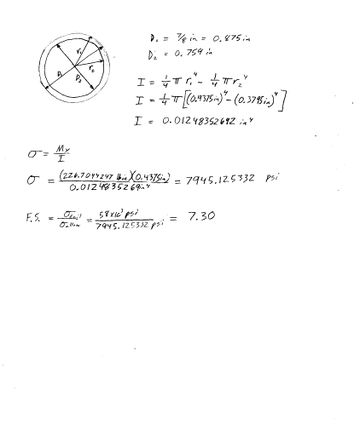 D₁ = 7/8 in = 0.875 in
D₂ = 0.759 in
r₁
r₂
D₁
D₂
I = 1/4 π r₁⁴ - 1/4 π r₂⁴
I = 1/4 π [(0.4375in)⁴ - (0.3795in)⁴]
I = 0.01248352692 in⁴
σ = My/I
σ = (226.7044247 lb·in)(0.4375in)/0.0124835269in⁴ = 7945.125332 psi
F.S. = = 58×10³ psi/7945.125332 psi = 7.30